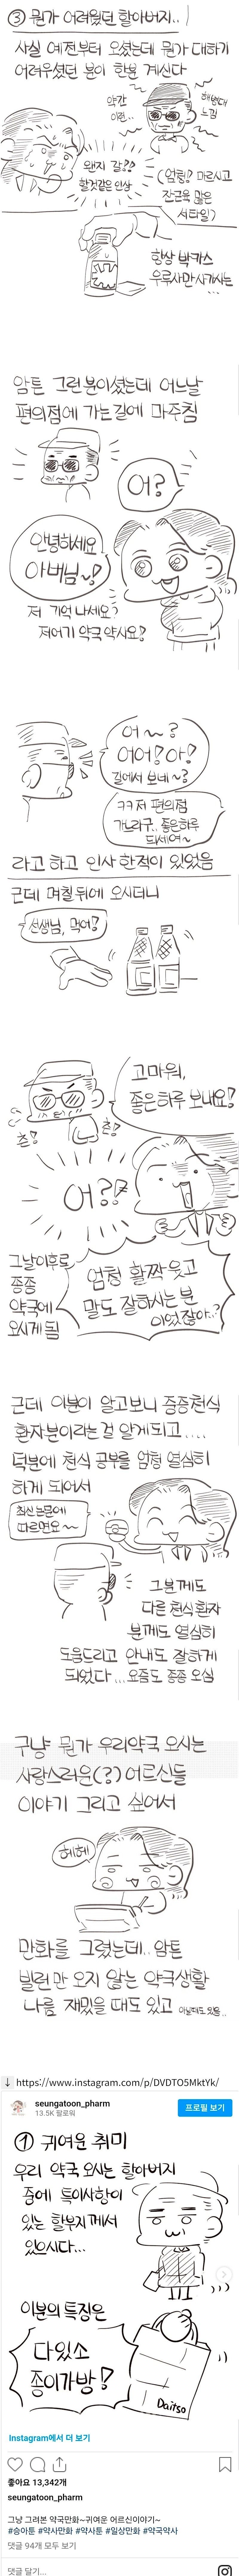 ③ 뭔가 어려웠던 할아버지..
사실 예전부터 오셨는데 뭔가 대하기
어려우셨던 분이 한분 계신다
약간
이런..
해병대
느낌
왠지 감??
할것같은 인상
(엄청 마르시고
잔근육 많은
스타일)
항상 박카스
우루사만 사가시는...
암튼 그런 분이셨는데 어느날
편의점에 가는 길에 마주침
어?
안녕하세요
아버님~!
저 기억 나세요?
저어기 약국 약사요!
어~?
어어! 아!
길에서 보네~?
ㅋㅋ 저 편의점
가느라구.. 좋은하루
되세여~
라고 하고 인사 한적이 있었음
근데 며칠 뒤에 오시더니
선생님, 먹어!
고마워,
좋은하루 보내요!
츤!
츤!
어??
그날이후로
종종
약국에
오시게 됨
엄청 활짝 웃고
말도 잘하시는 분
이었잖아..?
근데 이분이 알고보니 중증천식
환자분이라는 걸 알게되고....
덕분에 천식 공부를 엄청 열심히
하게 되어서
최신 논문에
따르면요~
그분께도
다른 천식환자
분께도 열심히
도움드리고 안내도 잘하게
되었다... 요즘도 종종 오심
구냥 뭔가 우리약국 오시는
사랑스러운(?) 어르신들
이야기 그리고 싶어서
헤헤
만화를 그렸는데.. 암튼
빌런만 오지 않는 약국생활
나름 재밌을 때도 있고 아닐때도 있음..
↓ https://www.instagram.com/p/DVDTO5MktYk/
seungatoon_pharm
13.5K 팔로워
프로필 보기
① 귀여운 취미
우리 약국 오시는 할아버지
중에 특이사항이
있는 할부지께서
있으시다...
이분의 특징은
다있소
종이가방!
Daitso
Instagram에서 더 보기
좋아요 13,342개
seungatoon_pharm
그냥 그려본 약국만화~귀여운 어르신이야기~
#승아툰 #약사만화 #약사툰 #일상만화 #약국약사
댓글 94개 모두 보기
댓글 달기...